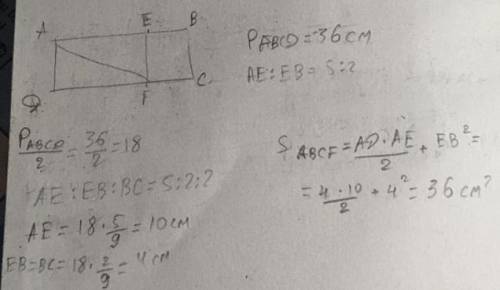 A E B
D F C
P ABCD = 36 см
AE:EB = 5:2
P ABCD / 2 = 36/2 = 18
AE:EB:BC = 5:2:2
AE = 18 · 5/9 = 10 см
EB=BC= 18 · 2/9 = 4 см
S ABCF = AD · AE / 2 + EB² =
= 4 · 10 / 2 + 4² = 36 см²